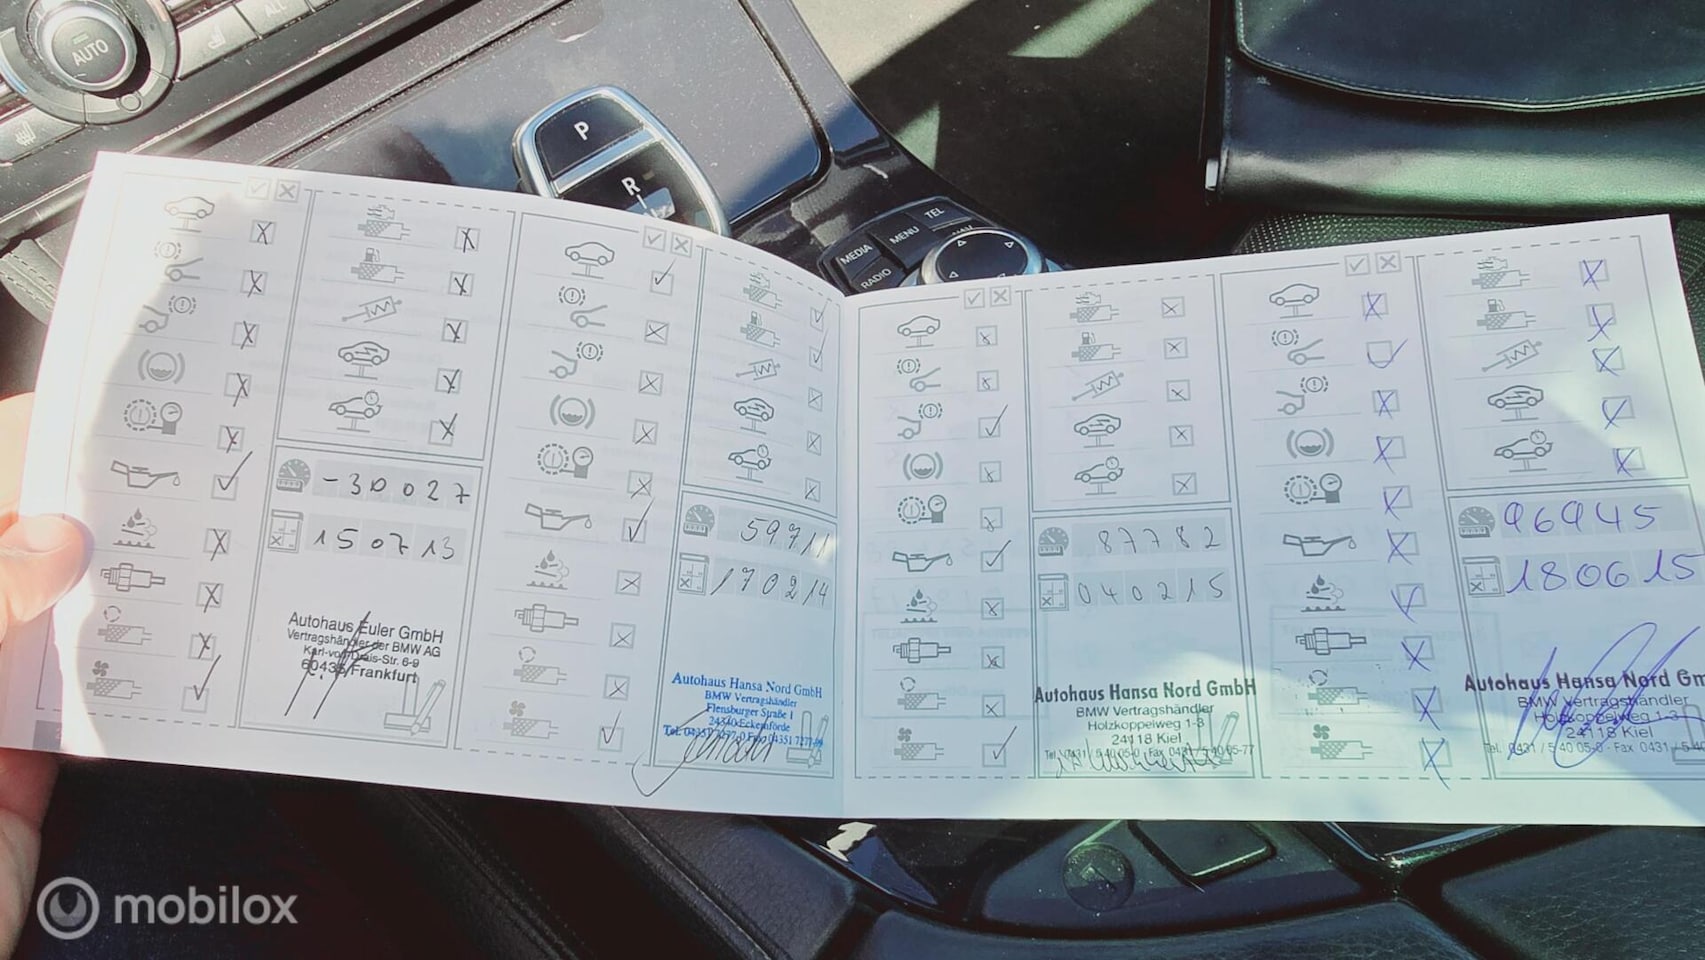 AUTO
ALL
P
R
TEL
MENU
MEDIA
RADIO
-30027
150713
Autohaus Euler GmbH
Vertragshändler der BMW AG
Karl-von-Drais-Str. 6-9
60435 Frankfurt
59711
170214
Autohaus Hansa Nord GmbH
BMW Vertragshändler
Flensburger Straße 1
24340 Eckernförde
87782
040215
Autohaus Hansa Nord GmbH
BMW Vertragshändler
Holzkoppelweg 1-3
24118 Kiel
Tel. 0431 / 5 40 05-0 · Fax 0431 / 5 40 05-77
96945
180615
Autohaus Hansa Nord Gm
BMW Vertragshändler
Holzkoppelweg 1-3
24118 Kiel
Tel. 0431 / 5 40 05-0 · Fax 0431 / 5 40
mobilox